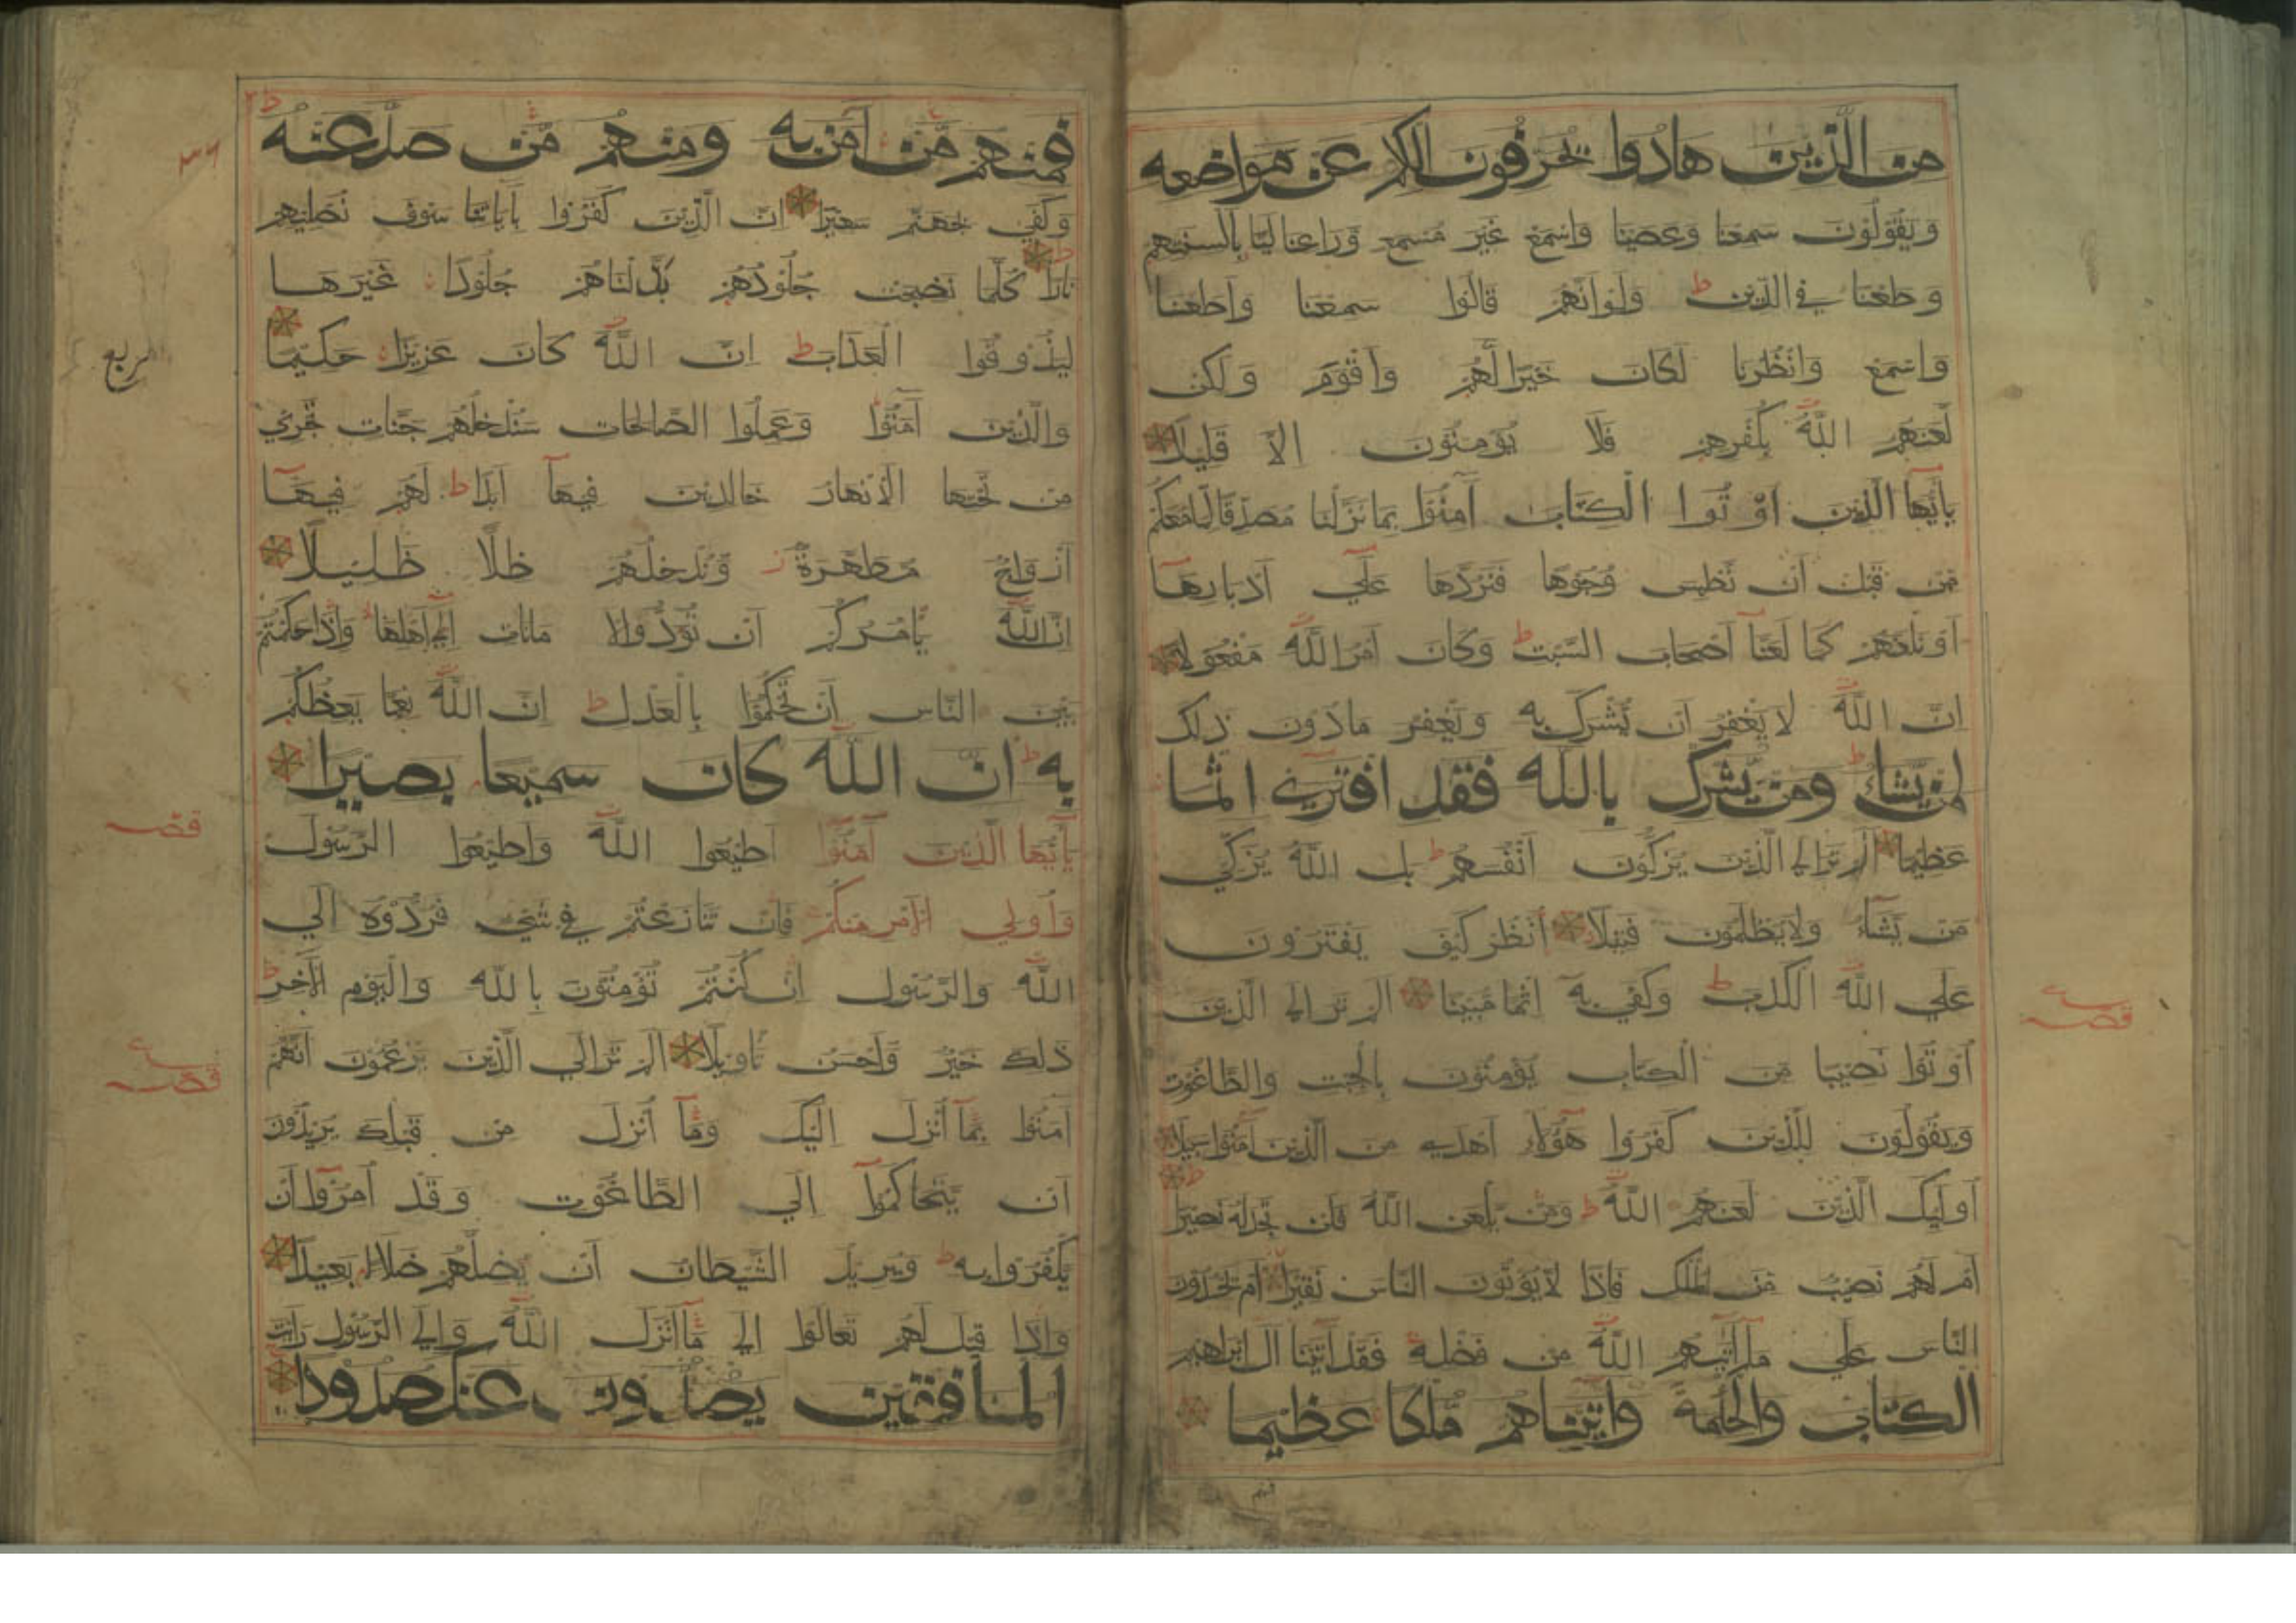 من الذين هادوا يحرفون الكلم عن مواضعه
ويقولون سمعنا وعصينا واسمع غير مسمع وراعنا ليا بالسنتهم
وطعنا في الدين ط ولو انهم قالوا سمعنا واطعنا
واسمع وانظرنا لكان خيرا لهم واقوم ولكن
لعنهم الله بكفرهم فلا يؤمنون الا قليلا
يايها الذين اوتوا الكتاب آمنوا بما نزلنا مصدقا لما معكم
من قبل ان نطمس وجوها فنردها علي ادبارها
او نلعنهم كما لعنا اصحاب السبت ط وكان امر الله مفعولا
ان الله لا يغفر ان يشرك به ويغفر ما دون ذلك
لمن يشاء ط ومن يشرك بالله فقد افتري اثما
عظيما الم تر الي الذين يزكون انفسهم ط بل الله يزكي
من يشاء ولا يظلمون فتيلا انظر كيف يفترون
علي الله الكذب ط وكفي به اثما مبينا الم تر الي الذين
اوتوا نصيبا من الكتاب يؤمنون بالجبت والطاغوت
ويقولون للذين كفروا هؤلاء اهدي من الذين آمنوا سبيلا
اوليك الذين لعنهم الله ط ومن يلعن الله فلن تجد له نصيرا ط
ام لهم نصيب من الملك فاذا لا يؤتون الناس نقيرا ام يحسدون
الناس علي ما آتيهم الله من فضله فقد آتينا آل ابراهيم
الكتاب والحكمة وآتيناهم ملكا عظيما
قصه
فمنهم
فمنهم من آمن به ومنهم من صد عنه ط
وكفي بجهنم سعيرا ان الذين كفروا بآياتنا سوف نصليهم
نارا ط كلما نضجت جلودهم بدلناهم جلودا غيرها
ليذوقوا العذاب ط ان الله كان عزيزا حكيما
والذين آمنوا وعملوا الصالحات سندخلهم جنات تجري
من تحتها الانهار خالدين فيها ابدا ط لهم فيها
ازواج مطهرة ز وندخلهم ظلا ظليلا
ان الله يامركم ان تؤدوا الا مانات الي اهلها واذا حكمتم
بين الناس ان تحكموا بالعدل ط ان الله نعما يعظكم
به ط ان الله كان سميعا بصيرا
يايها الذين آمنوا اطيعوا الله واطيعوا الرسول
واولي الامر منكم فان تنازعتم في شيء فردوه الي
الله والرسول ان كنتم تؤمنون بالله واليوم الآخر ط
ذلك خير واحسن تاويلا الم تر الي الذين يزعمون انهم
آمنوا بما انزل اليك وما انزل من قبلك يريدون
ان يتحاكموا الي الطاغوت وقد امروا ان
يكفروا به ط ويريد الشيطان ان يضلهم ضلالا بعيدا
واذا قيل لهم تعالوا الي ما انزل الله والي الرسول رايت
المنافقين يصدون عنك صدودا
ربع
قصه
قصه